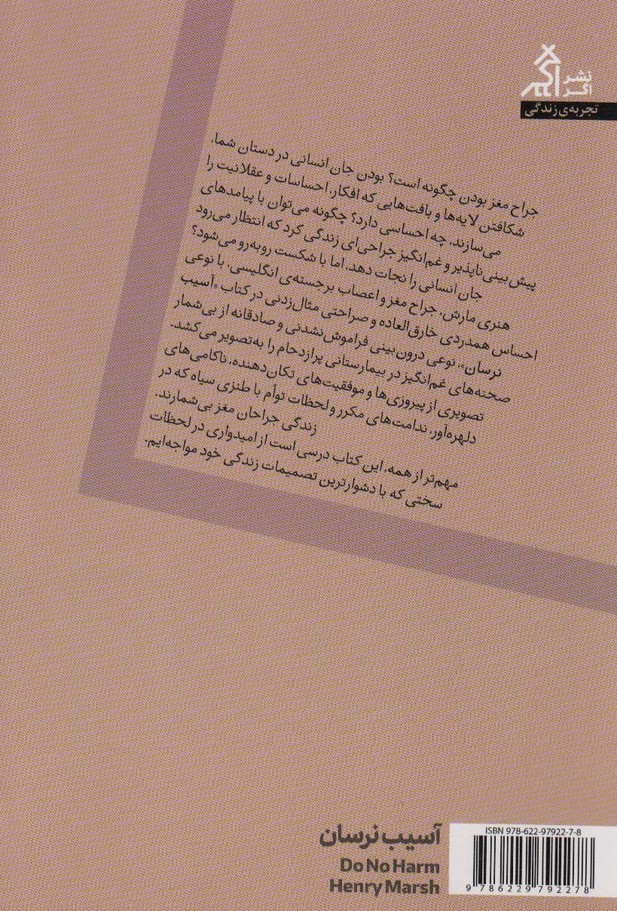 نشر
اگر
تجربه‌ی زندگی
جراح مغز بودن چگونه است؟ بودن جان انسانی در دستان شما،
شکافتن لایه‌ها و بافت‌هایی که افکار، احساسات و عقلانیت را
می‌سازند، چه احساسی دارد؟ چگونه می‌توان با پیامدهای
پیش‌بینی‌ناپذیر و غم‌انگیز جراحی‌ای زندگی کرد که انتظار می‌رود
جان انسانی را نجات دهد، اما با شکست روبه‌رو می‌شود؟
هنری مارش، جراح مغز و اعصاب برجسته‌ی انگلیسی، با نوعی
احساس همدردی خارق‌العاده و صراحتی مثال‌زدنی در کتاب «آسیب
نرسان»، نوعی درون‌بینی فراموش‌نشدنی و صادقانه از بی‌شمار
صحنه‌های غم‌انگیز در بیمارستانی پرازدحام را به‌تصویر می‌کشد.
تصویری از پیروزی‌ها و موفقیت‌های تکان‌دهنده، ناکامی‌های
دلهره‌آور، ندامت‌های مکرر و لحظات توأم با طنزی سیاه که در
زندگی جراحان مغز بی‌شمارند.
مهم‌تر از همه، این کتاب درسی است از امیدواری در لحظات
سختی که با دشوارترین تصمیمات زندگی خود مواجه‌ایم.
آسیب نرسان
Do No Harm
Henry Marsh
ISBN 978-622-97922-7-8
9 786229 792278